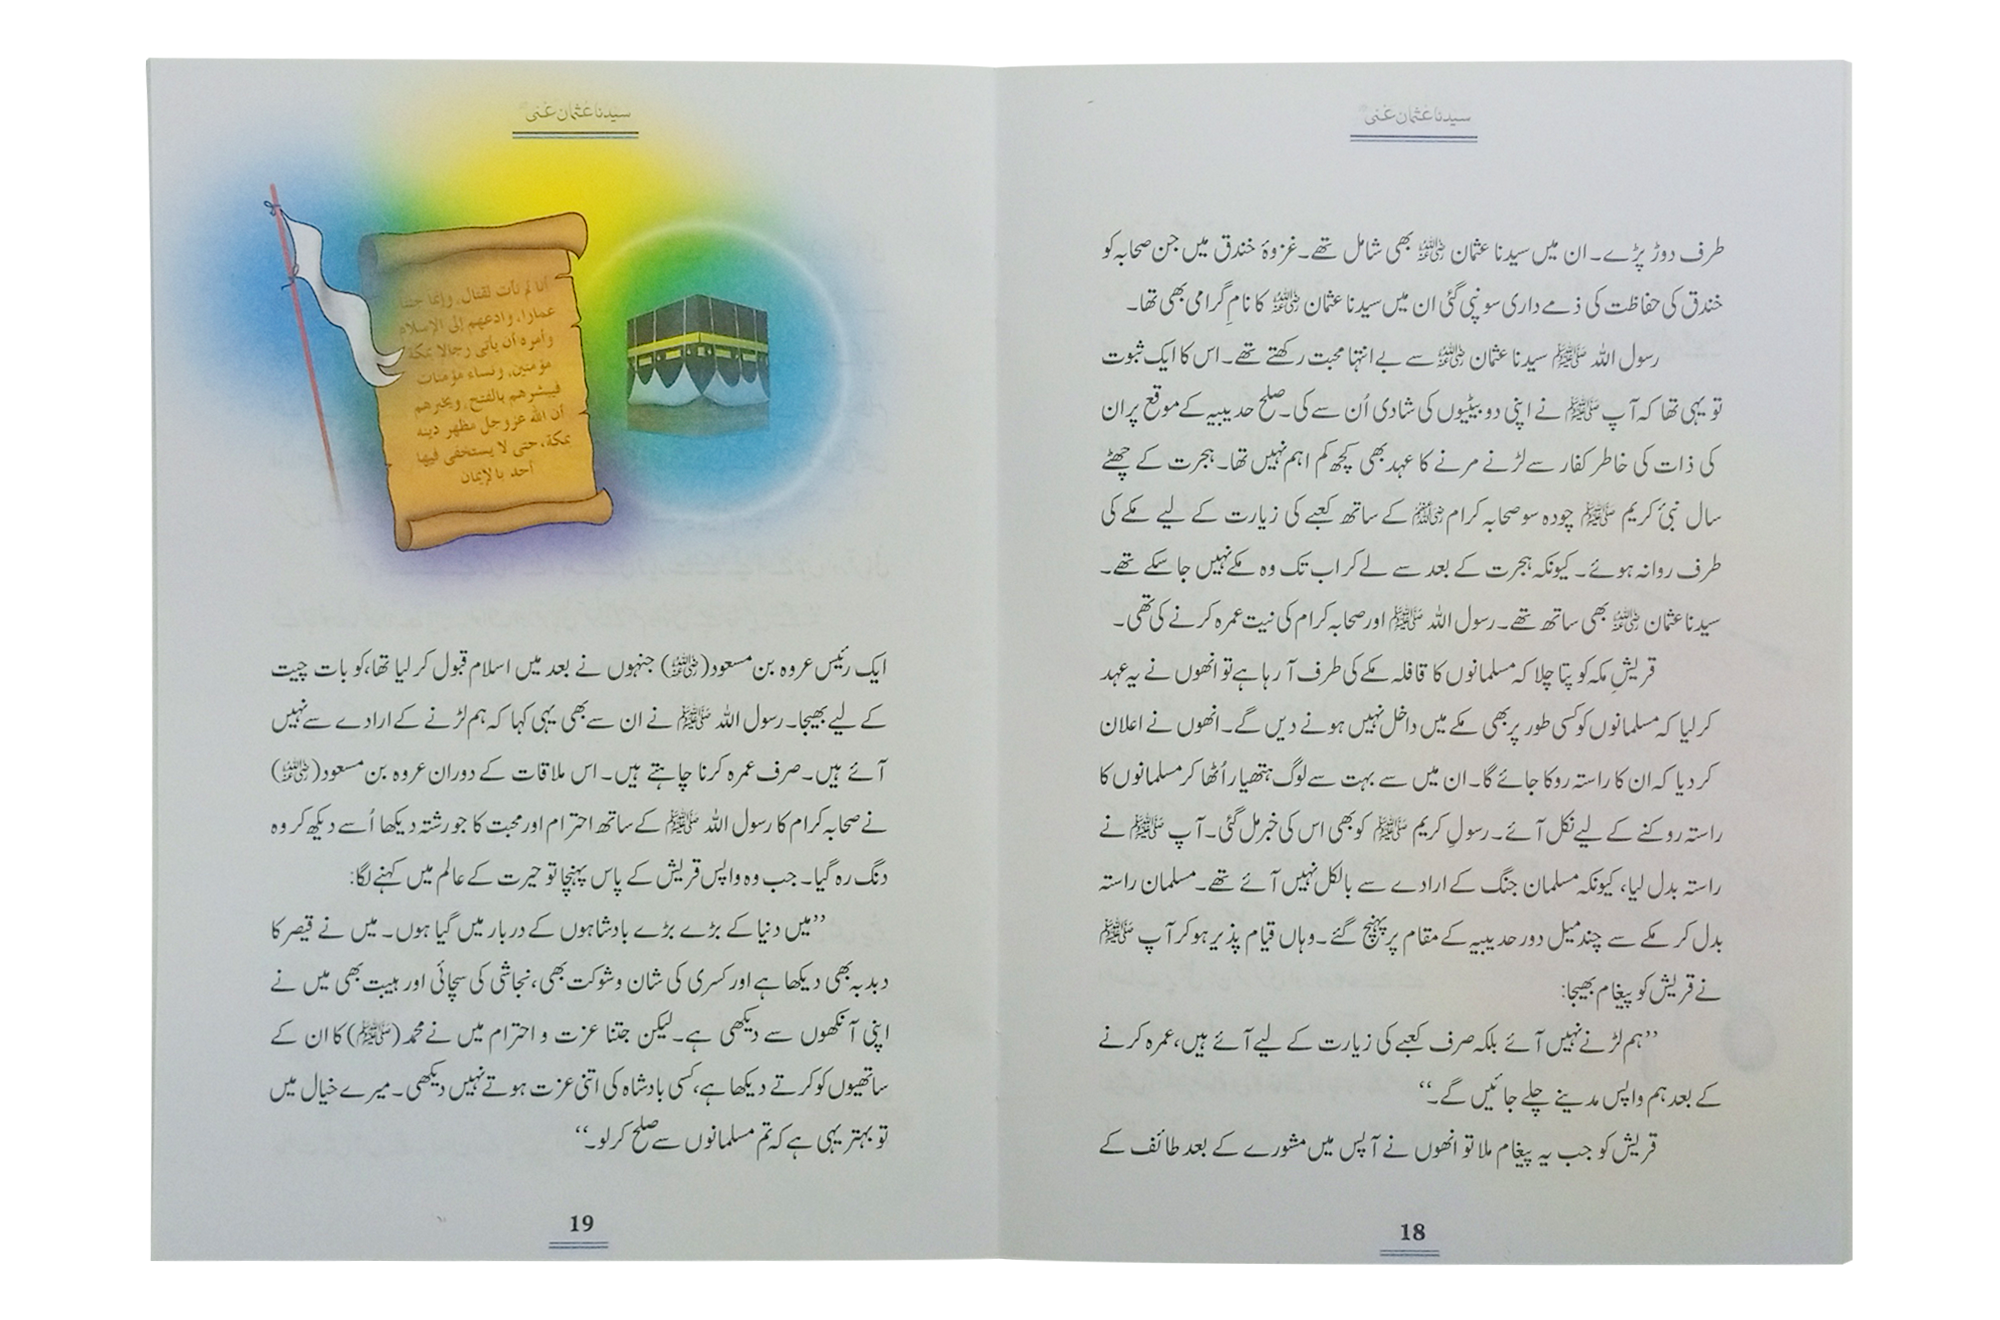 سیدنا عثمان غنیؓ
طرف دوڑ پڑے۔ ان میں سیدنا عثمان رضی اللہ عنہ بھی شامل تھے۔ غزوۂ خندق میں جن صحابہ کو
خندق کی حفاظت کی ذمے داری سونپی گئی ان میں سیدنا عثمان رضی اللہ عنہ کا نامِ گرامی بھی تھا۔
رسول اللہ ﷺ سیدنا عثمان رضی اللہ عنہ سے بے انتہا محبت رکھتے تھے۔ اس کا ایک ثبوت
تو یہی تھا کہ آپ ﷺ نے اپنی دو بیٹیوں کی شادی اُن سے کی۔ صلح حدیبیہ کے موقع پر ان
کی ذات کی خاطر کفار سے لڑنے مرنے کا عہد بھی کچھ کم اہم نہیں تھا۔ ہجرت کے چھٹے
سال نبیٔ کریم ﷺ چودہ سو صحابہ کرام رضی اللہ عنہم کے ساتھ کعبے کی زیارت کے لیے مکے کی
طرف روانہ ہوئے۔ کیونکہ ہجرت کے بعد سے لے کر اب تک وہ مکے نہیں جا سکے تھے۔
سیدنا عثمان رضی اللہ عنہ بھی ساتھ تھے۔ رسول اللہ ﷺ اور صحابہ کرام کی نیت عمرہ کرنے کی تھی۔
قریشِ مکہ کو پتا چلا کہ مسلمانوں کا قافلہ مکے کی طرف آ رہا ہے تو انھوں نے یہ عہد
کر لیا کہ مسلمانوں کو کسی طور پر بھی مکے میں داخل نہیں ہونے دیں گے۔ انھوں نے اعلان
کر دیا کہ ان کا راستہ روکا جائے گا۔ ان میں سے بہت سے لوگ ہتھیار اُٹھا کر مسلمانوں کا
راستہ روکنے کے لیے نکل آئے۔ رسولِ کریم ﷺ کو بھی اس کی خبر مل گئی۔ آپ ﷺ نے
راستہ بدل لیا، کیونکہ مسلمان جنگ کے ارادے سے بالکل نہیں آئے تھے۔ مسلمان راستہ
بدل کر مکے سے چند میل دور حدیبیہ کے مقام پر پہنچ گئے۔ وہاں قیام پذیر ہو کر آپ ﷺ
نے قریش کو پیغام بھیجا:
’’ہم لڑنے نہیں آئے بلکہ صرف کعبے کی زیارت کے لیے آئے ہیں، عمرہ کرنے
کے بعد ہم واپس مدینے چلے جائیں گے۔‘‘
قریش کو جب یہ پیغام ملا تو انھوں نے آپس میں مشورے کے بعد طائف کے
18
سیدنا عثمان غنیؓ
أنا لم نأت لقتال، وإنما جئنا
عمارا، وادعهم إلى الإسلام
وأمره أن يأتى رجالا بمكة
مؤمنين، ونساء مؤمنات
فيبشرهم بالفتح، ويخبرهم
أن الله عزوجل مظهر دينه
بمكة، حتى لا يستخفى فيها
أحد بالإيمان
ایک رئیس عروہ بن مسعود (رضی اللہ عنہ) جنہوں نے بعد میں اسلام قبول کر لیا تھا، کو بات چیت
کے لیے بھیجا۔ رسول اللہ ﷺ نے ان سے بھی یہی کہا کہ ہم لڑنے کے ارادے سے نہیں
آئے ہیں۔ صرف عمرہ کرنا چاہتے ہیں۔ اس ملاقات کے دوران عروہ بن مسعود (رضی اللہ عنہ)
نے صحابہ کرام کا رسول اللہ ﷺ کے ساتھ احترام اور محبت کا جو رشتہ دیکھا اُسے دیکھ کر وہ
دنگ رہ گیا۔ جب وہ واپس قریش کے پاس پہنچا تو حیرت کے عالم میں کہنے لگا:
’’میں دنیا کے بڑے بڑے بادشاہوں کے دربار میں گیا ہوں۔ میں نے قیصر کا
دبدبہ بھی دیکھا ہے اور کسری کی شان و شوکت بھی، نجاشی کی سچائی اور ہیبت بھی میں نے
اپنی آنکھوں سے دیکھی ہے۔ لیکن جتنا عزت و احترام میں نے محمد (ﷺ) کا ان کے
ساتھیوں کو کرتے دیکھا ہے، کسی بادشاہ کی اتنی عزت ہوتے نہیں دیکھی۔ میرے خیال میں
تو بہتر یہی ہے کہ تم مسلمانوں سے صلح کر لو۔‘‘
19